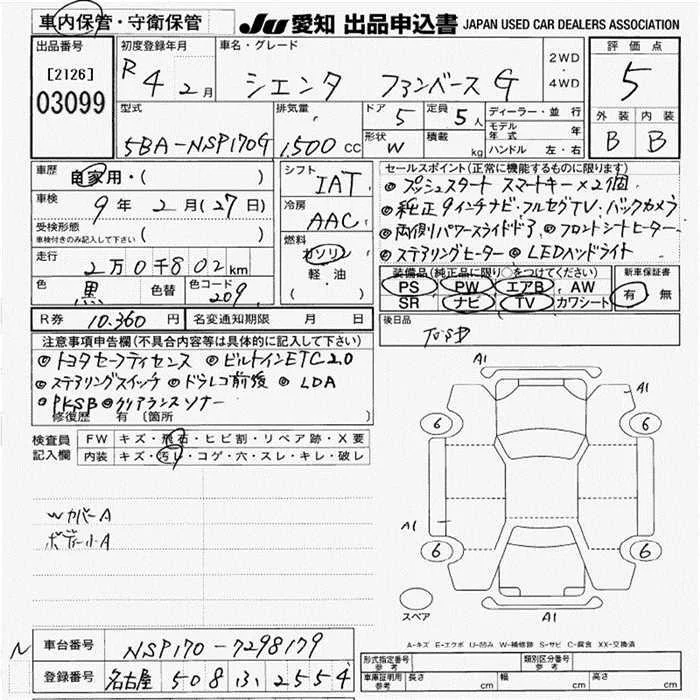 車内保管・守衛保管
JU 愛知 出品申込書 JAPAN USED CAR DEALERS ASSOCIATION
出品番号
[2126]
03099
初度登録年月
R 4 2月
車名・グレード
シエンタ ファンベースG
2WD
・
4WD
評価点
5
外装 内装
B B
型式
5BA-NSP170G
排気量
1,500 CC
ドア 5
定員 5人
形状 W
積載 kg
ディーラー・並行
モデル年式 年
ハンドル 左・右
車歴
自家用・( )
車検
9年 2月(27日)
受検形態
車検付きのみ記入して下さい ( )
走行
2万0千802km
色 黒 色替 色コード 209
シフト
IAT
冷房
AAC
燃料
ガソリン
軽・油
( )
セールスポイント(正常に機能するものに限ります)
◎プッシュスタート スマートキー×2個
◎純正9インチナビ・フルセグTV、バックカメラ
◎両側パワースライドドア ◎フロントシートヒーター
◎ステアリングヒーター ◎LEDヘッドライト
装備品(純正品に限り○をつけてください)
PS PW エアB AW
SR ナビ TV カワシート
新車保証書
有 無
R券 10,360円 名変通知期限 月 日
後日品
注意事項申告欄(不具合内容等は具体的に記入して下さい)
◎トヨタセーフティセンス ◎ビルトインETC2.0
◎ステアリングスイッチ ◎ドラレコ前後 ◎LDA
◎PKSB ◎クリアランスソナー
修復歴 有 〔箇所 〕
検査員
記入欄
FW キズ・飛石・ヒビ割・リペア跡・X要
内装 キズ・汚レ・コゲ・穴・スレ・キレ・破レ
WカバーA
ボディー小A
A1
A1
6 6
A1
6 6
スペア
A1
A-キズ E-エクボ U-凹み W-補修跡 S-サビ C-腐食 XX-交換済
N
車台番号 NSP170-7298179
登録番号 名古屋 508 ふ 2554
形式指定番号 参考
類別区分番号 参考
車庫証明用 参考 長さ cm 幅 cm 高さ cm